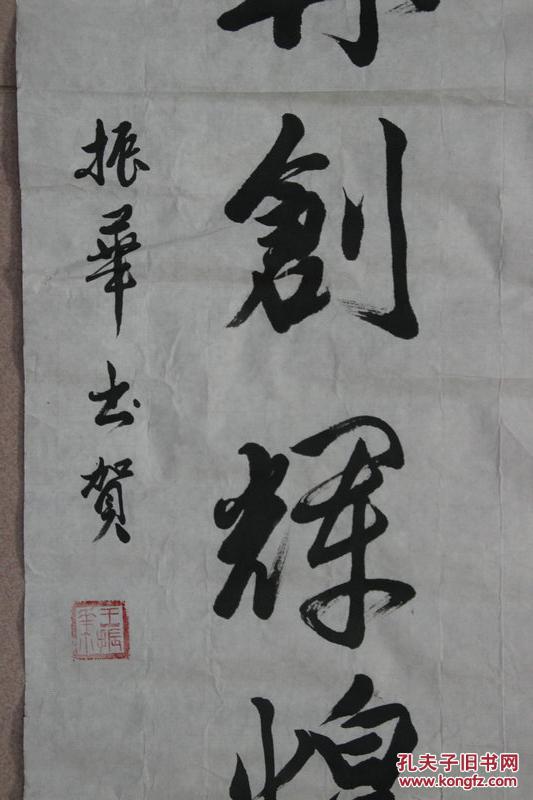 再創輝煌
振華书賀
王振華
孔夫子旧书网
www.kongfz.com